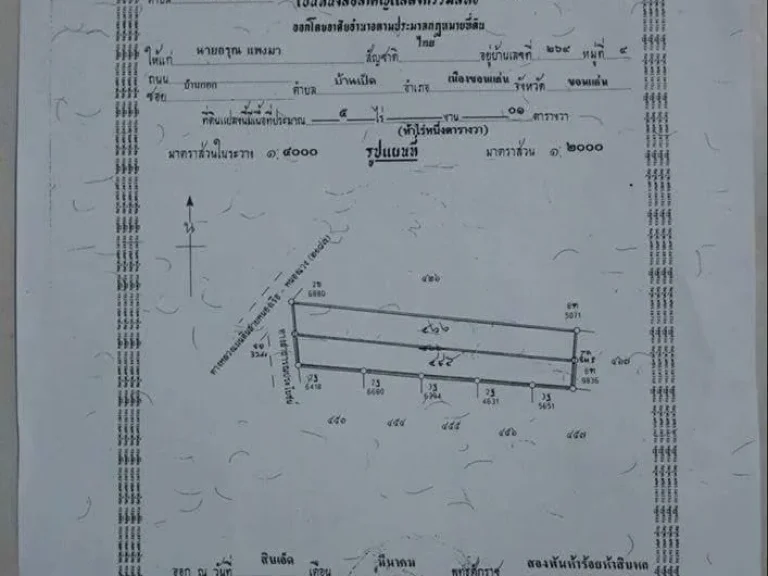 ออกโดยอาศัยอำนาจตามประมวลกฎหมายที่ดิน
ให้แก่ นายอรุณ แพงมา สัญชาติ ไทย อยู่บ้านเลขที่ ๒๖๙ หมู่ที่ ๔
ถนน
ซอย บ้านกอก ตำบล บ้านเป็ด อำเภอ เมืองขอนแก่น จังหวัด ขอนแก่น
ที่ดินแปลงนี้มีเนื้อที่ประมาณ ๕ ไร่ - งาน ๐๑ ตารางวา
(ห้าไร่หนึ่งตารางวา)
มาตราส่วนในระวาง ๑:๔๐๐๐ รูปแผนที่ มาตราส่วน ๑:๒๐๐๐
น
๔๒๖
6880
5071
๔๖๗
6836
6418
6660
6394
4631
5651
๔๕๓ ๔๕๔ ๔๕๕ ๔๕๖ ๔๕๗
ออก ณ วันที่ สิบเอ็ด เดือน มีนาคม พุทธศักราช สองพันห้าร้อยห้าสิบ